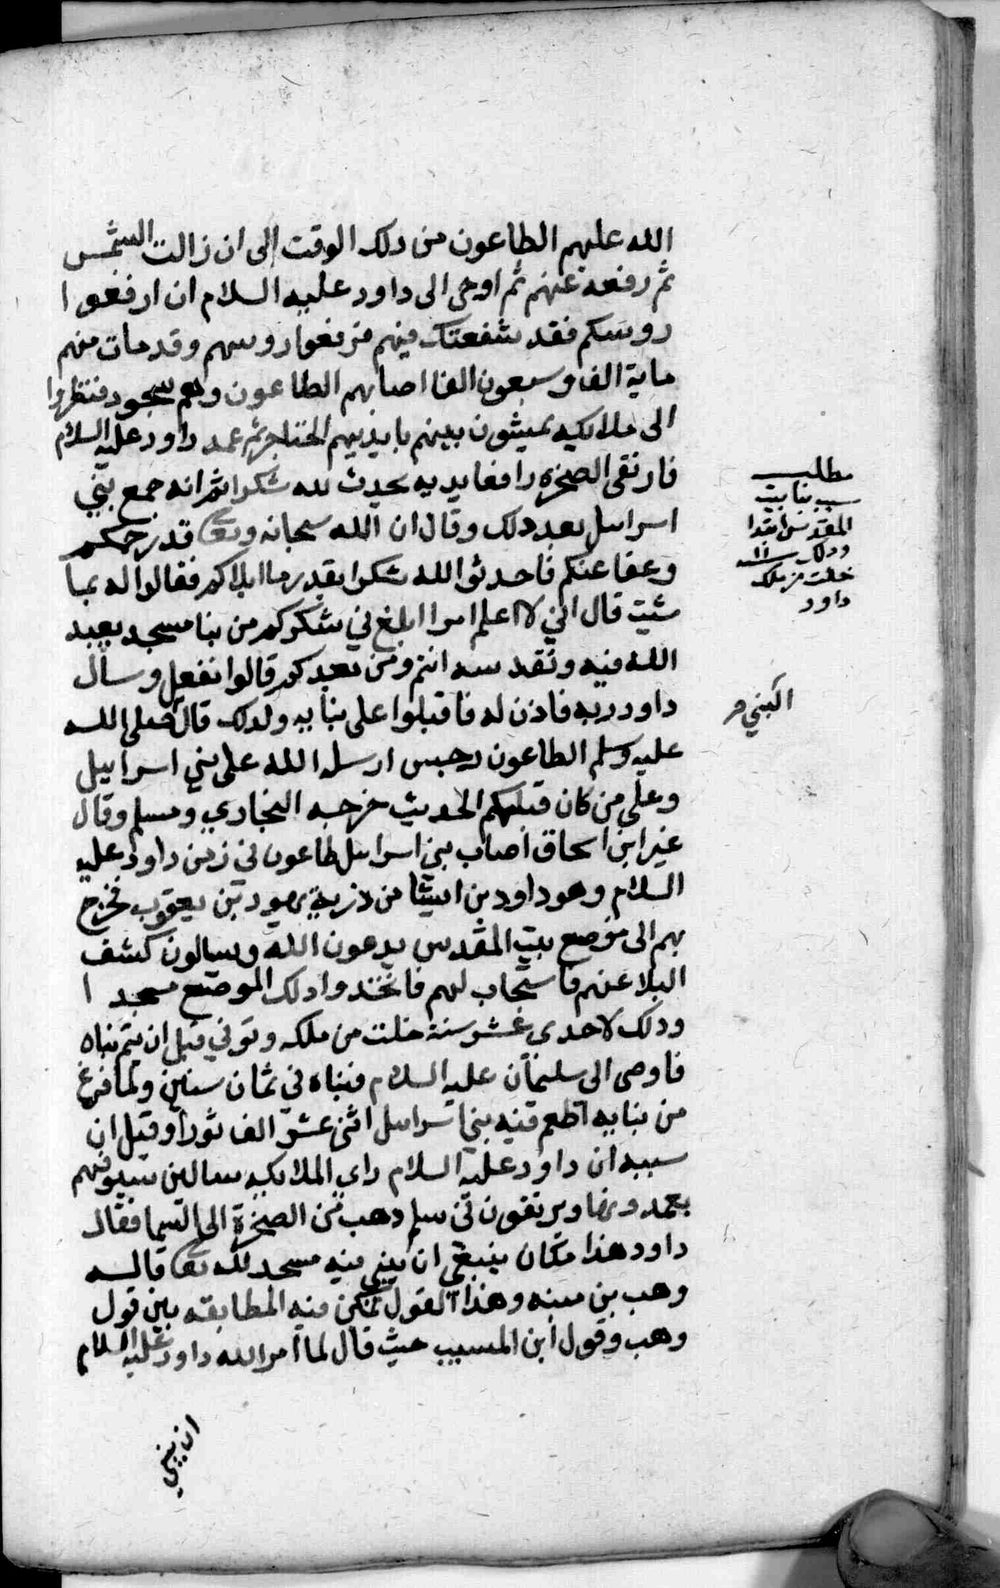 الله عليهم الطاعون من دلك الوقت الى ان زالت الشمس
ثم رفعه عنهم ثم اوحى الى داود عليه السلام ان ارفعوا
روسكم فقد شفعتك فيهم فرفعوا روسهم وقد مات منهم
ماية الف وسبعون الفا اصابهم الطاعون وهم سجود فنظروا
الى ملايكه يمشون بينهم بايديهم الخناجر ثم عمد داود عليه السلام
فارتقى الصخره رافعا يديه يحدث لله شكرا ثم انه جمع بني
اسرايل بعد دلك وقال ان الله سبحانه وتعا قد رحمكم
وعفا عنكم فاحدثوا لله شكرا بقدر ما ابلاكم فقالوا له بما
شيت قال اني لا اعلم امرا ابلغ في شكركم من بنا مسجد يعبد
الله فيه ونقدسه انتم ومن بعدكم قالوا نفعل وسال
داود ربه فاذن له فاقبلوا على بنايه ولدلك قال صلى الله
عليه وسلم الطاعون رجس ارسله الله على بني اسرايل
وعلى من كان قبلكم الحديث خرجه البخاري ومسلم وقال
غير ابن اسحاق اصاب بني اسرايل طاعون في زمن داود عليه
السلام وهو داود بن ايشا من ذرية يهود بن يعقوب فخرج
بهم الى موضع بيت المقدس يدعون الله ويسالون كشف
البلا عنهم فاستجاب لهم فاتخذوا دلك الموضع مسجدا
ودلك لاحدى عشر سنة خلت من ملكه وتوفي قبل ان يتم بناه
فاوصى الى سليمان عليه السلام فبناه في ثمان سنين ولما فرغ
من بنايه اطعم فيه بني اسرايل اثنى عشر الف ثورا وقيل ان
سببه ان داود عليه السلام راى الملايكه سالين سيوفهم
يغمدونها ويرتقون في سلم دهب من الصخرة الى السما فقال
داود هذا مكان ينبغي ان يبنى فيه مسجد لله تعا قاله
وهب بن منبه وهذا القول تمكن فيه المطابقه بين قول
وهب وقول ابن المسيب حيث قال لما امر الله داود عليه السلام
ان يبني
مطلب
سبب بنا بيت
المقدس ابتدا
ودلك ١١ سنه
خلت من ملك
داود